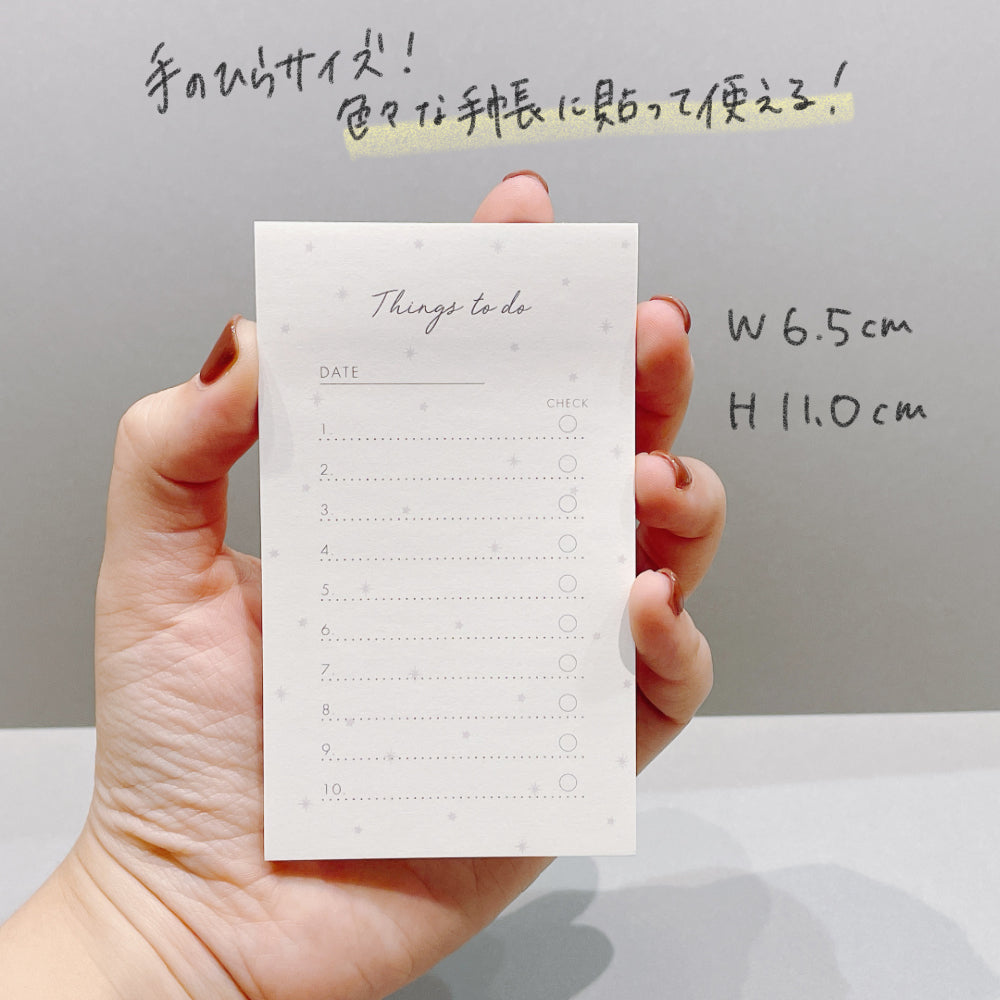 手のひらサイズ!
色々な手帳に貼って使える!
Things to do
W 6.5cm
DATE
H 11.0cm
CHECK
1.
2.
3.
4.
5.
6.
7.
8.
9.
10.